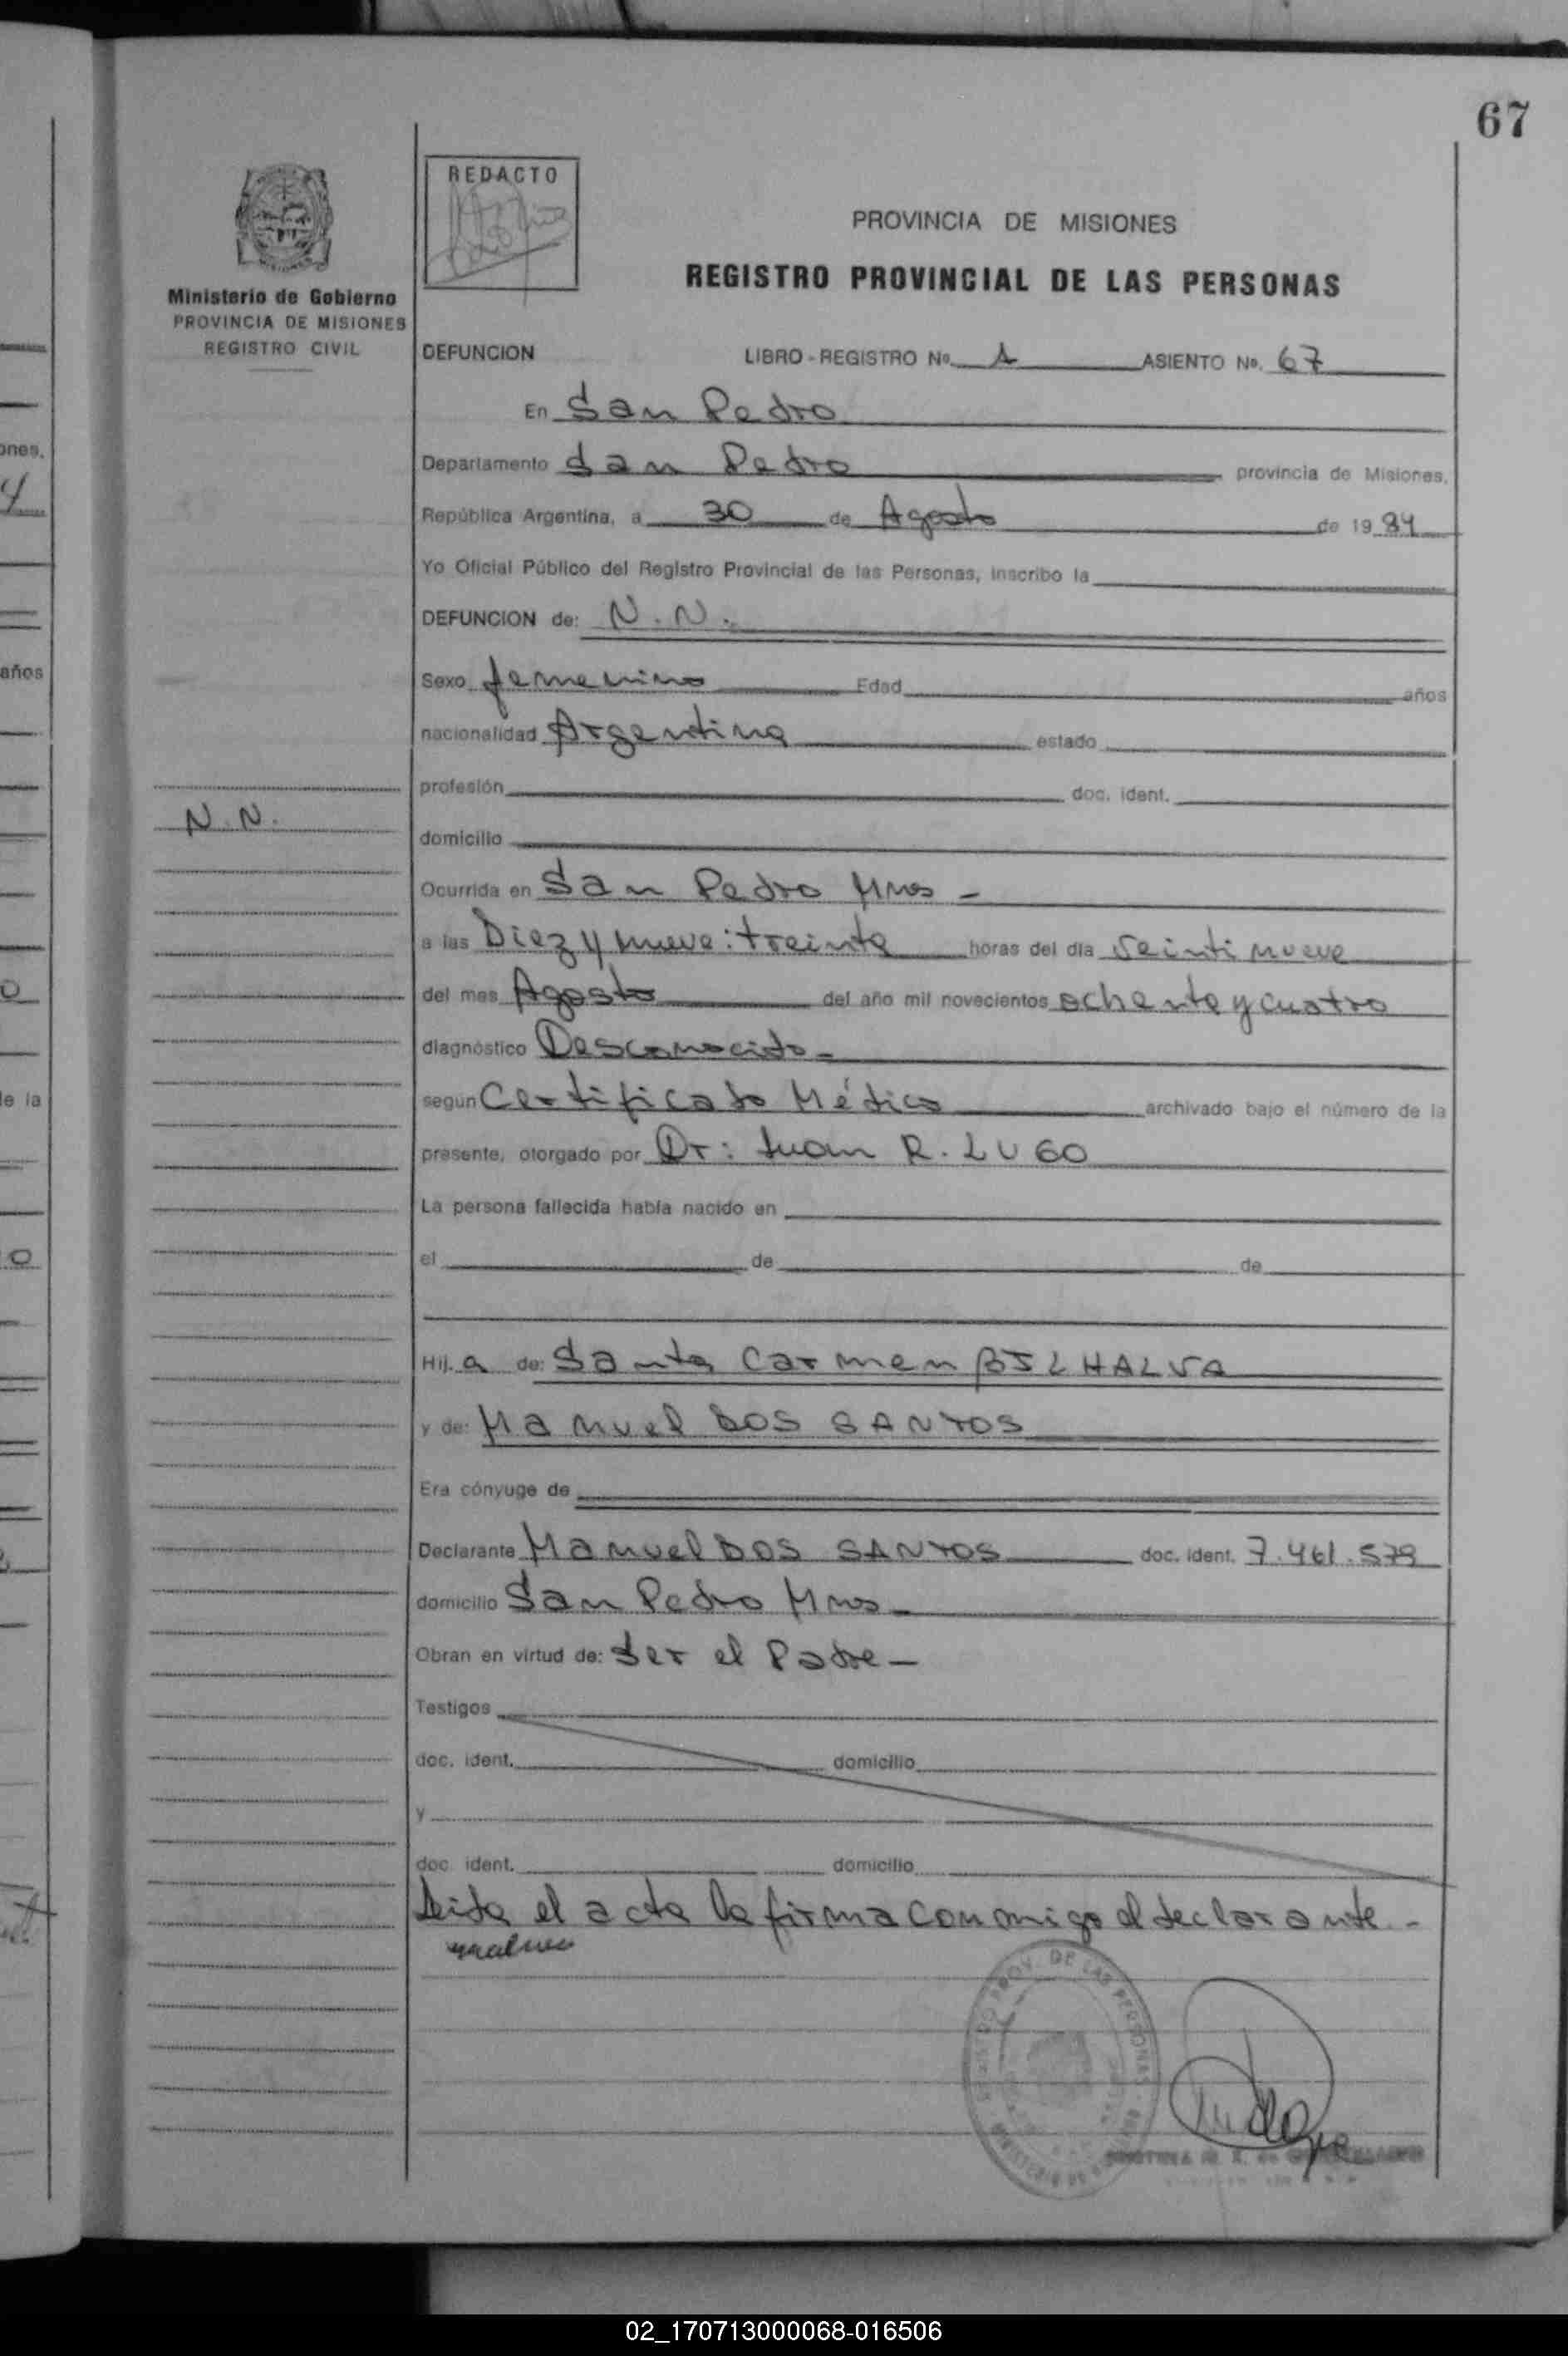 67
REDACTO
PROVINCIA DE MISIONES
REGISTRO PROVINCIAL DE LAS PERSONAS
Ministerio de Gobierno
PROVINCIA DE MISIONES
REGISTRO CIVIL
DEFUNCION LIBRO - REGISTRO No. 1 ASIENTO No. 67
En San Pedro
Departamento San Pedro provincia de Misiones,
República Argentina, a 30 de Agosto de 1984
Yo Oficial Público del Registro Provincial de las Personas, inscribo la
DEFUNCION de: N.N.
Sexo femenino Edad años
nacionalidad Argentina estado
profesión doc. ident.
N.N.
domicilio
Ocurrida en San Pedro Mnes -
a las Diez y nueve: treinta horas del día veinti nueve
del mes Agosto del año mil novecientos ochenta y cuatro
diagnóstico Desconocido -
según Certificado Médico archivado bajo el número de la
presente, otorgado por Dr: Juan R. LUGO
La persona fallecida había nacido en
el de de
Hij a de: Santa Carmen BILHALVA
y de: Manuel DOS SANTOS
Era cónyuge de
Declarante Manuel DOS SANTOS doc. ident. 7.461.579
domicilio San Pedro Mnes -
Obran en virtud de: Ser el Padre -
Testigos
doc. ident. domicilio
y
doc. ident. domicilio
Leida el acta la firma conmigo el declarante -
PROV. DE LAS PERSONAS
02_170713000068-016506